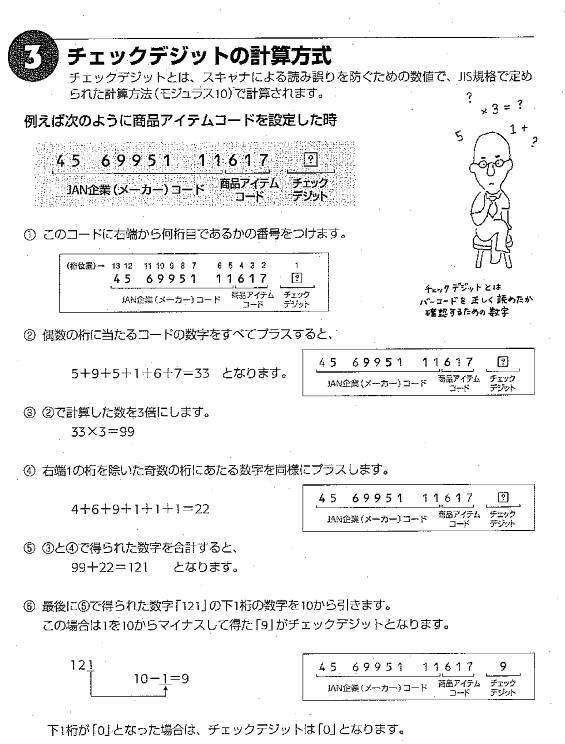 3 チェックデジットの計算方式
チェックデジットとは、スキャナによる読み誤りを防ぐための数値で、JIS規格で定め
られた計算方法(モジュラス10)で計算されます。
例えば次のように商品アイテムコードを設定した時
45 69951 11617 ?
JAN企業(メーカー)コード 商品アイテムコード チェックデジット
? ×3=?
5 1+ ?
チェックデジットとは
バーコードを正しく読めたか
確認するための数字
① このコードに右端から何桁目であるかの番号をつけます。
(桁位置)→ 13 12 11 10 9 8 7 6 5 4 3 2 1
45 69951 11617 ?
JAN企業(メーカー)コード 商品アイテムコード チェックデジット
② 偶数の桁に当たるコードの数字をすべてプラスすると、
5+9+5+1+6+7=33 となります。
45 69951 11617 ?
JAN企業(メーカー)コード 商品アイテムコード チェックデジット
③ ②で計算した数を3倍にします。
33×3=99
④ 右端1の桁を除いた奇数の桁にあたる数字を同様にプラスします。
4+6+9+1+1+1=22
45 69951 11617 ?
JAN企業(メーカー)コード 商品アイテムコード チェックデジット
⑤ ③と④で得られた数字を合計すると、
99+22=121 となります。
⑥ 最後に⑤で得られた数字「121」の下1桁の数字を10から引きます。
この場合は1を10からマイナスして得た「9」がチェックデジットとなります。
121
10-1=9
45 69951 11617 9
JAN企業(メーカー)コード 商品アイテムコード チェックデジット
下1桁が「0」となった場合は、チェックデジットは「0」となります。